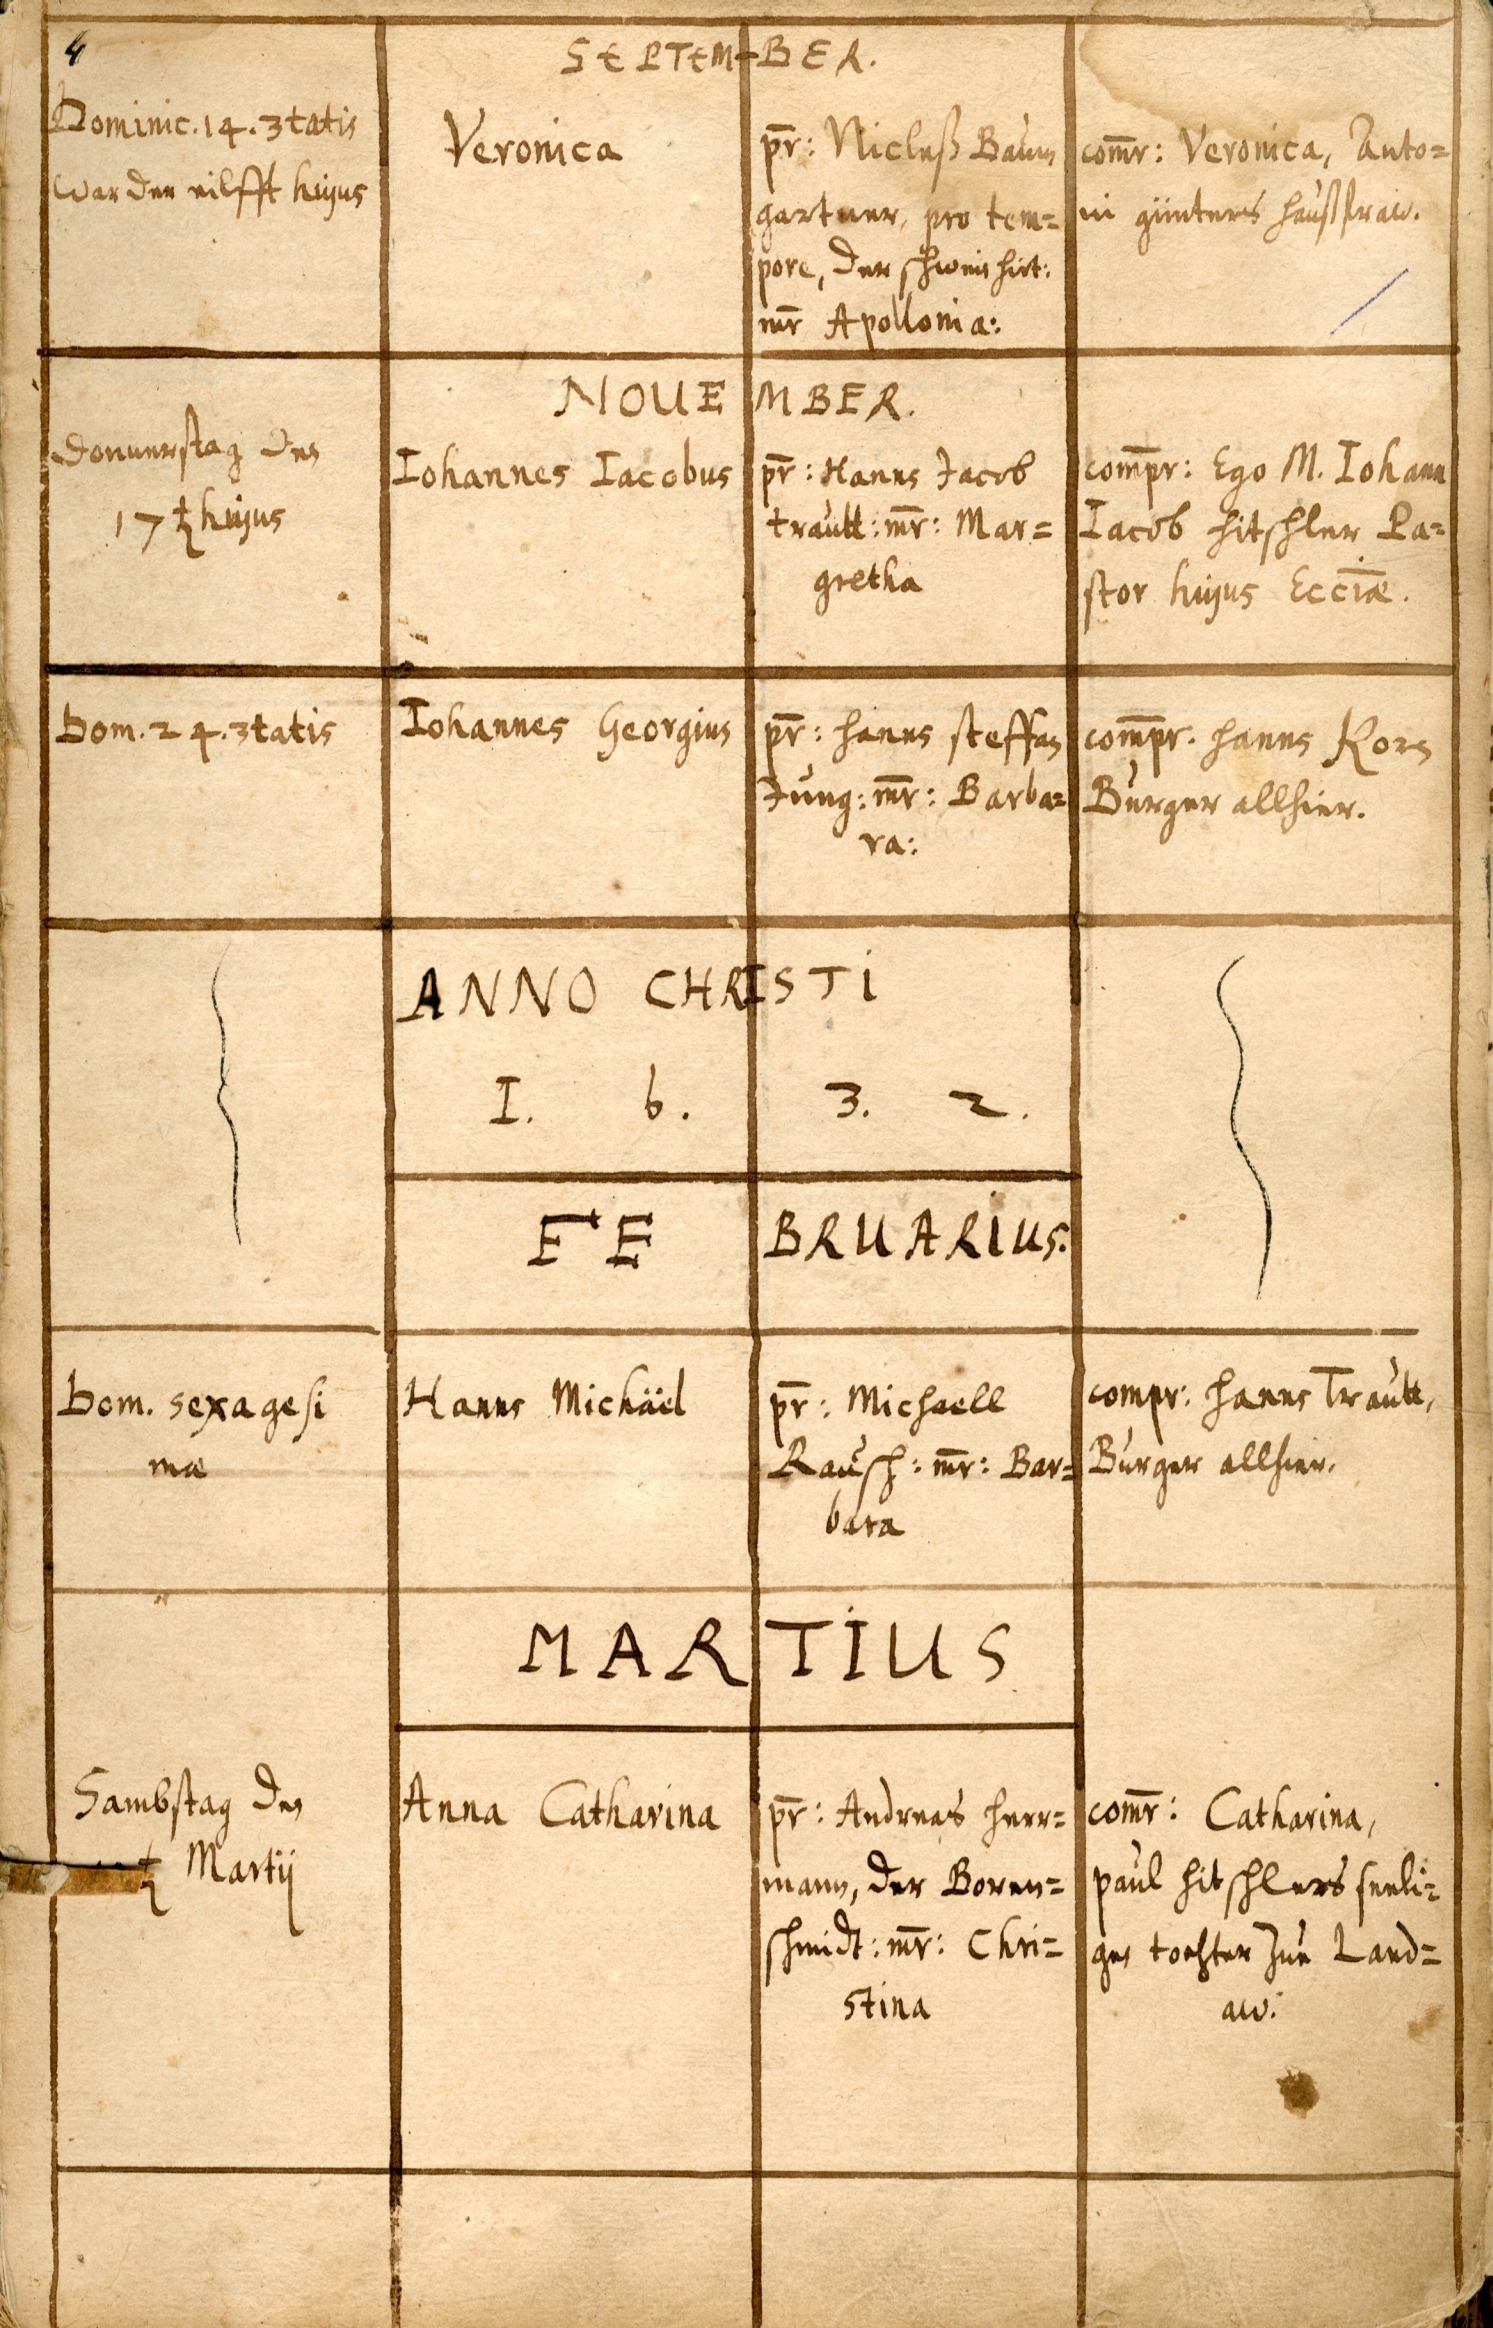 4
SEPTEMBER.
Dominic. 14. 3tatis
war der eilfft hujus
Veronica
pr: Niclaß Baum
gartner, pro tem=
pore, der schweinhirt:
mr Apollonia:
comr: Veronica, Anto=
ni günters haußfraw.
NOUEMBER.
Donnerstag den
17t hujus
Iohannes Iacobus
pr: Hanns Jacob
trautt: mr: Mar=
gretha
compr: Ego M. Iohann
Iacob hitschler Pa=
stor hujus Ecciæ.
Dom. 24. 3tatis
Iohannes Georgius
pr: hanns steffan
Jung: mr: Barba=
ra:
compr. hanns Korn
Burger allhier.
ANNO CHRISTI
I. 6. 3. 2.
FEBRUARIUS.
Dom. sexagesi
mæ
Hanns Michäel
pr: Michaell
Rausch: mr: Bar=
bara
compr: hanns Trautt,
Burger allhier.
MARTIUS
Sambstag den
Martij
Anna Catharina
pr: Andreas herr=
mann, der Boren=
schmidt: mr: Chri=
stina
comr: Catharina,
paul hitschlers seeli=
gen tochter zue Land=
aw.